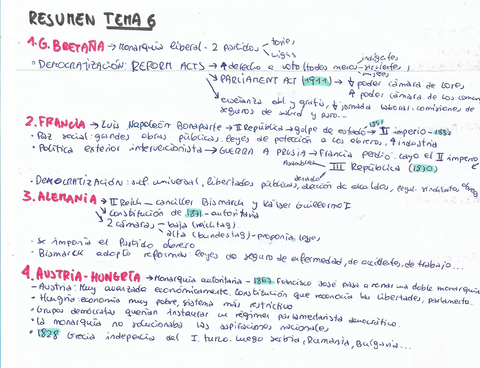 RESUMEN TEMA 6
1. G. BRETAÑA → Monarquía liberal - 2 partidos
tories
wigs
• DEMOCRATIZACIÓN: REFORM ACTS → ↑ derecho a voto (todos menos
indigentes
sirvientes,
mujeres
PARLIAMENT ACT (1911) → ↓ poder cámara de lores
↑ poder cámara de los comunes
enseñanza obl. y gratis, ↓ jornada laboral, comisiones de
seguros de salud y paro...
2. FRANCIA → Luis Napoleón Bonaparte → II República → golpe de estado → II imperio - 1852
1851
• Paz social: grandes obras públicas, leyes de protección a los obreros, ↑ industria
• Política exterior intervencionista → GUERRA A PRUSIA → Francia perdió. Cayó el II imperio
III República (1870)
Asamblea
senado
• DEMOCRATIZACIÓN: suf. universal, libertades públicas, elección de alcaldes, legal. sindicatos obreros
3. ALEMANIA → II Reich - canciller Bismarck y Káiser Guillermo I
constitución de 1871 - autoritaria
2 cámaras - baja (reichtag)
alta (bundestag) - proponía leyes
- Se imponía el Partido obrero
- Bismarck adoptó reformas: leyes de seguro de enfermedad, de accidentes, de trabajo...
4. AUSTRIA-HUNGRÍA → Monarquía autoritaria - 1867 Francisco José pasó a rendir una doble monarquía
- Austria: Muy avanzado económicamente. Constitución que reconocía las libertades, parlamento.
- Hungría: economía muy pobre, sistema más restrictivo
• Grupos demócratas querían instaurar un régimen parlamentarista democrático.
• La monarquía no solucionaba las aspiraciones nacionales
• 1828 Grecia independía del I. turco. Luego Serbia, Rumanía, Bulgaria...